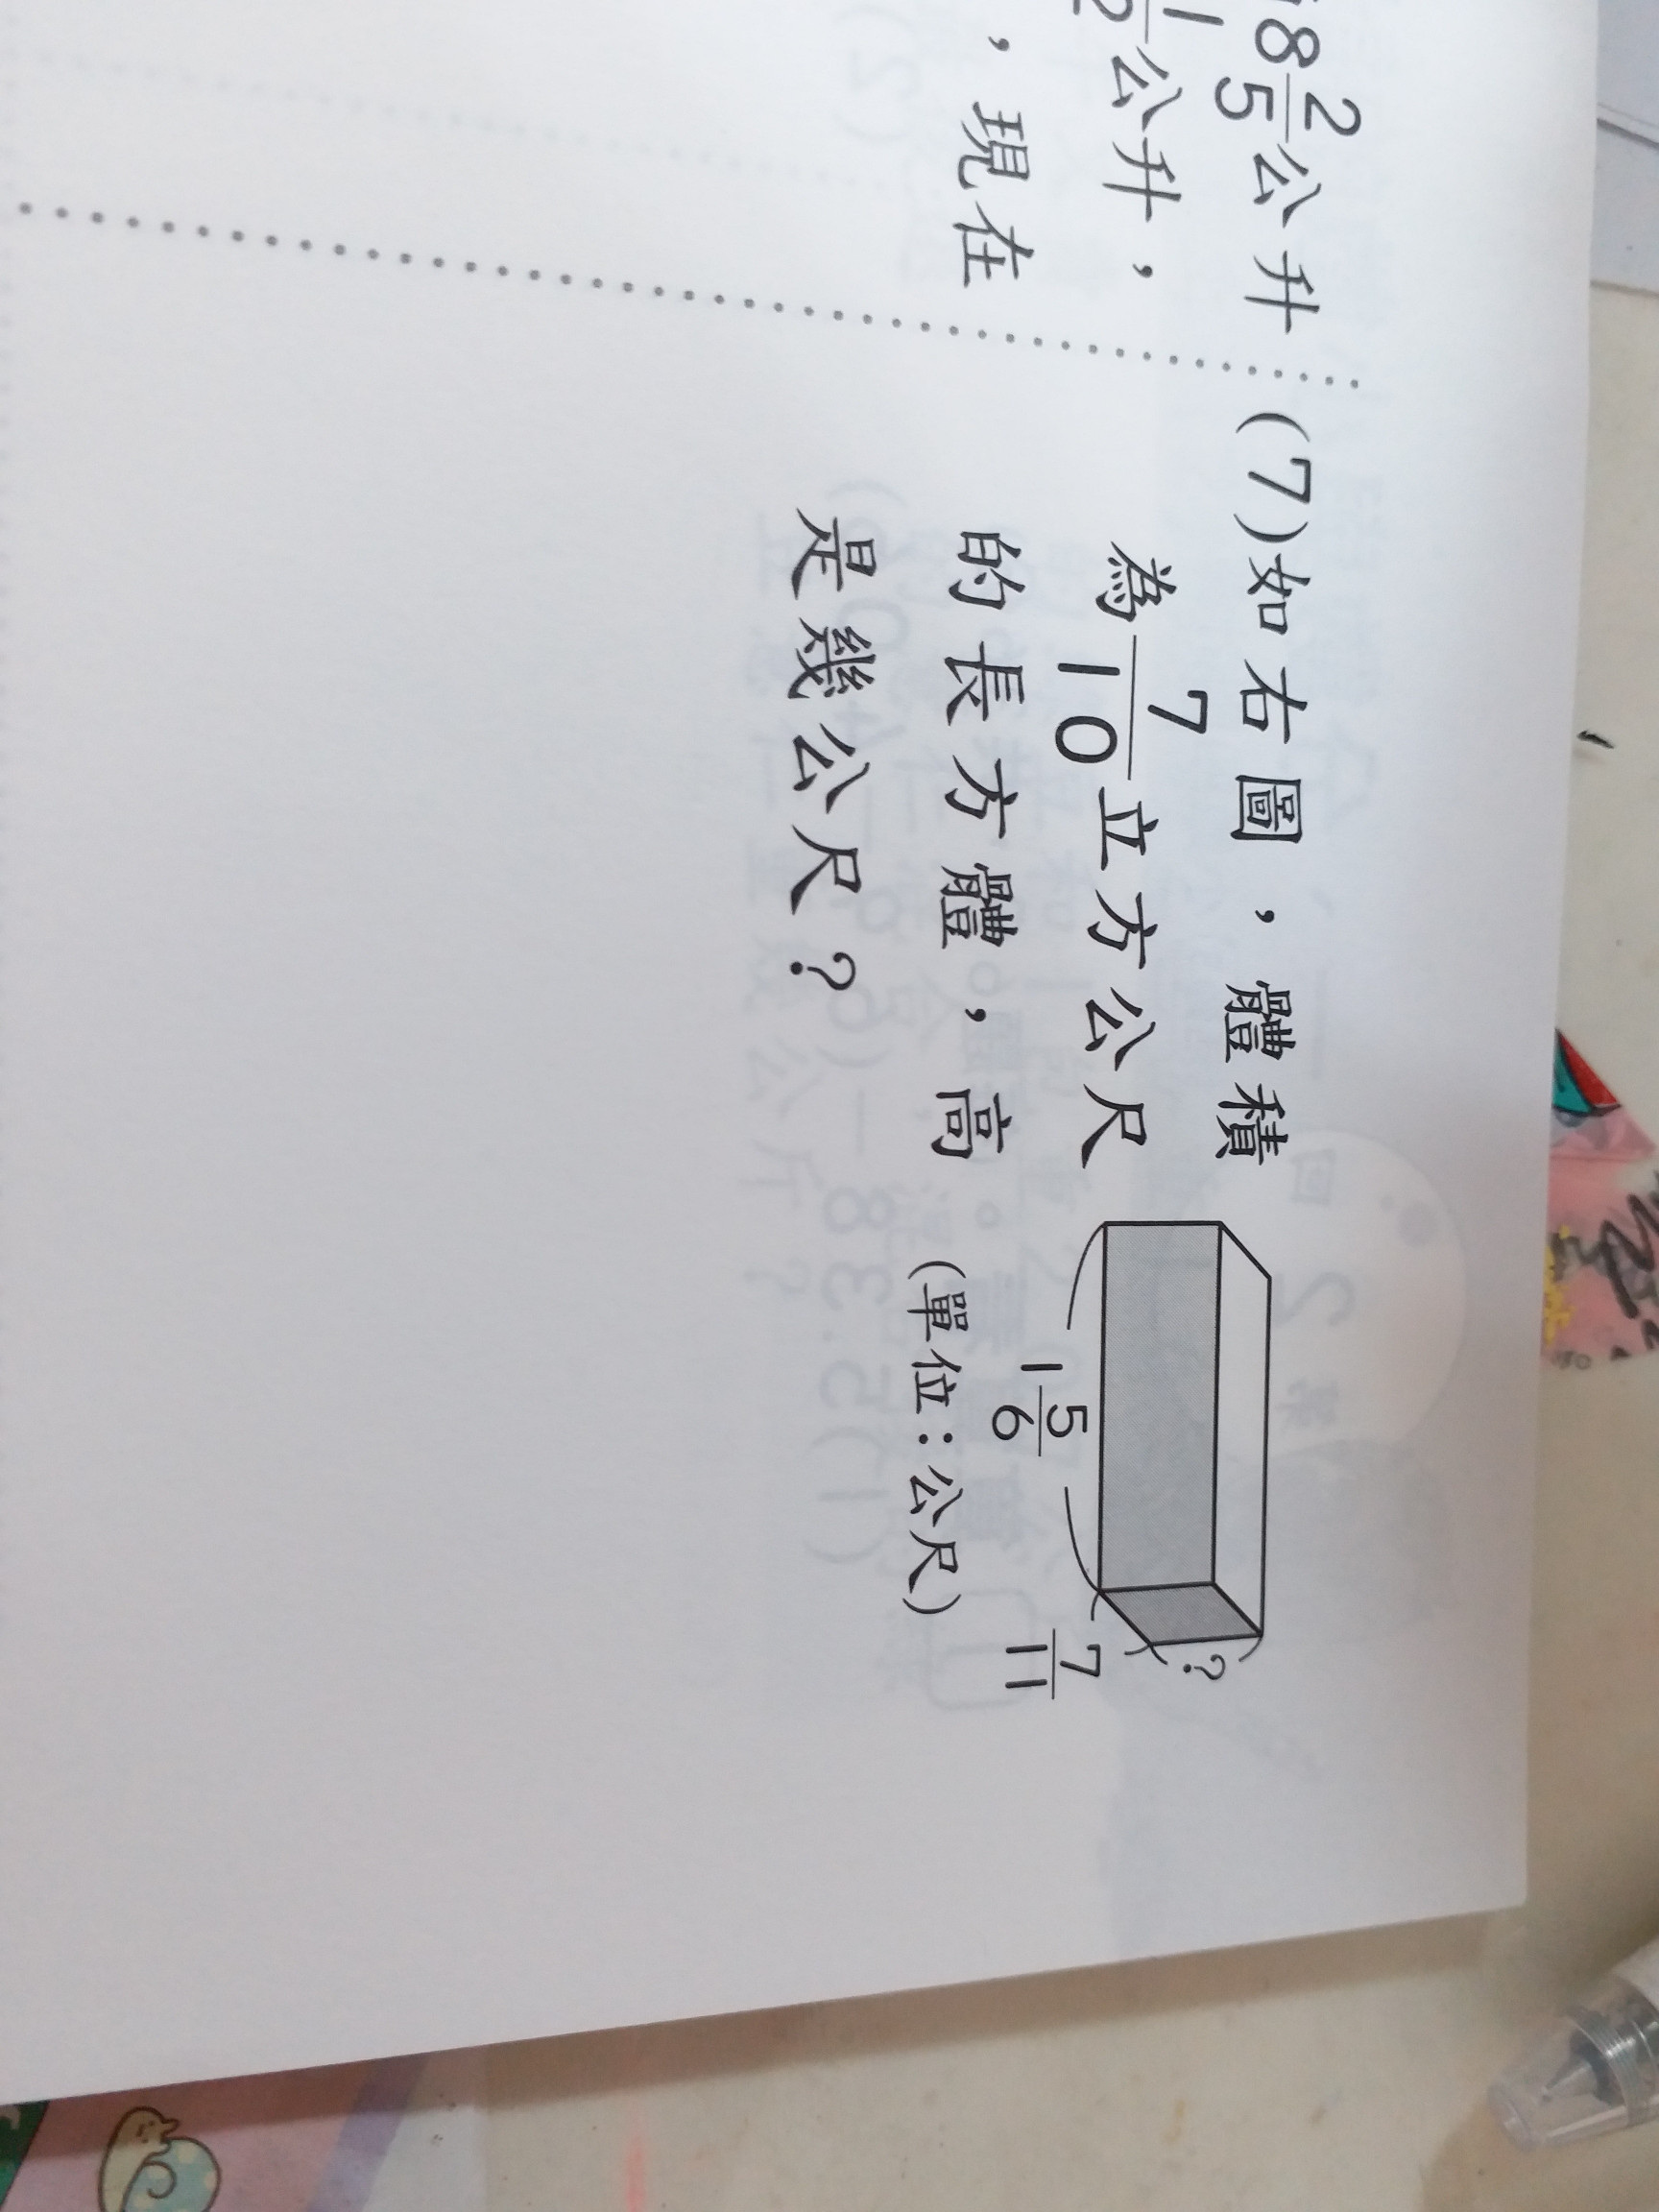 8 2/5 公升
1/2 公升，
，現在
(7)如右圖，體積
為 7/10 立方公尺
的長方體，高
是幾公尺？
?
1 5/6
7/11
(單位：公尺)